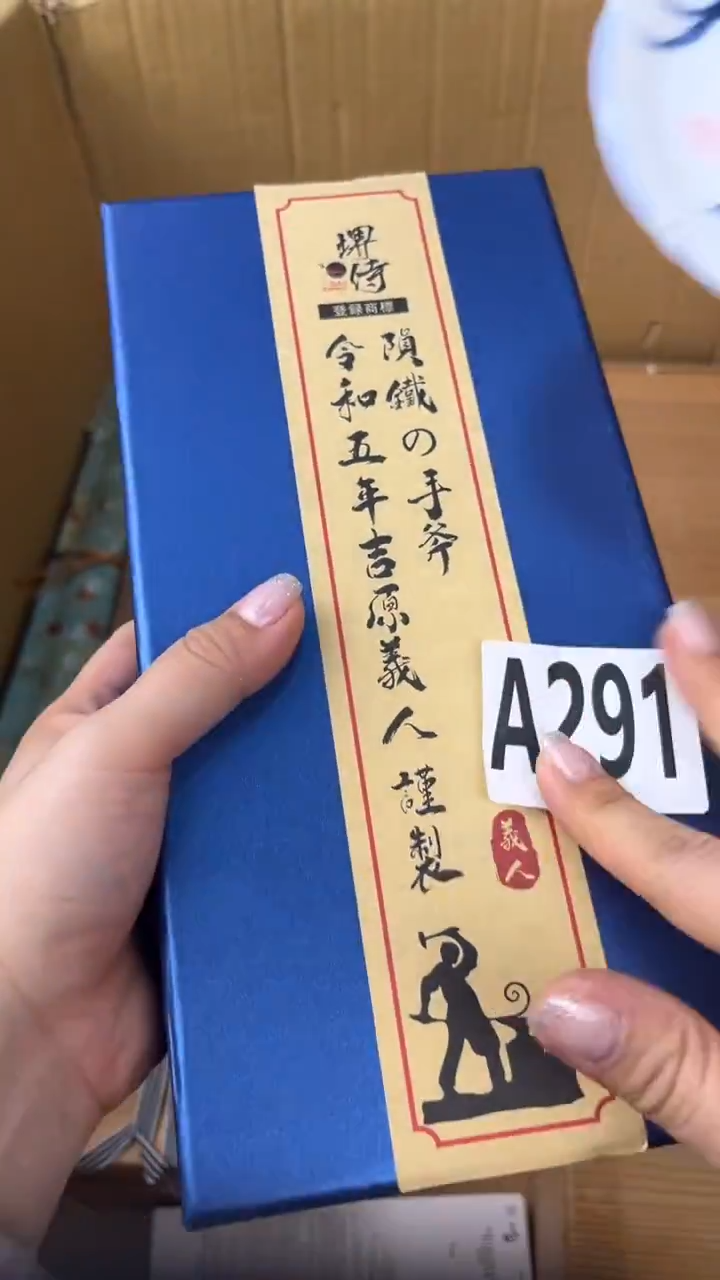 堺
侍
登録商標
隕鐵の手斧
令和五年吉原義人謹製
A291
義人